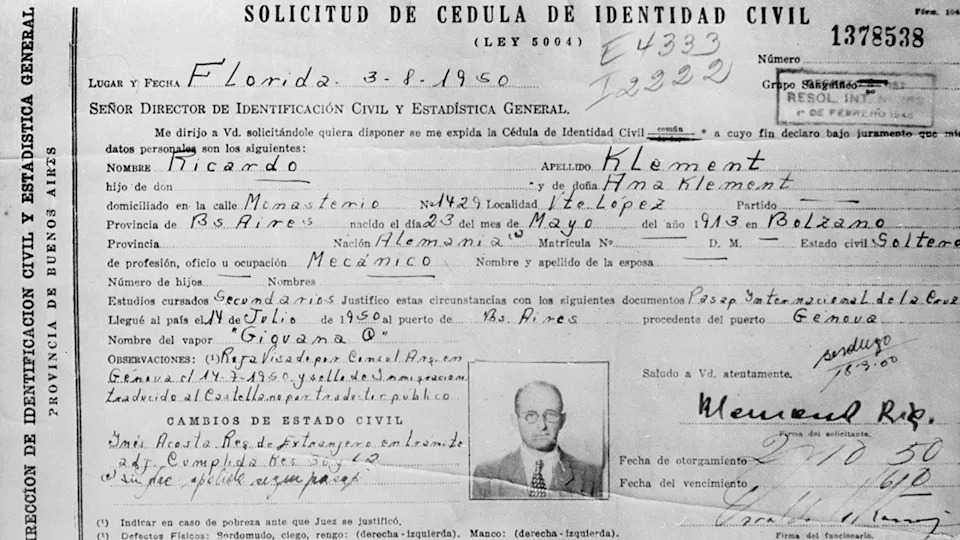 SOLICITUD DE CEDULA DE IDENTIDAD CIVIL
(LEY 5004)
Fórm. 104
E 4333
I 2222
1378538
Número
LUGAR Y FECHA Florida. 3-8-1950
Grupo Sanguíneo
RESOL. INT. N
1º DE FEBRERO 1946
SEÑOR DIRECTOR DE IDENTIFICACIÓN CIVIL Y ESTADÍSTICA GENERAL.
Me dirijo a Vd. solicitándole quiera disponer se me expida la Cédula de Identidad Civil común * a cuyo fin declaro bajo juramento que mis
datos personales son los siguientes:
NOMBRE Ricardo APELLIDO Klement
hijo de don y de doña Ana Klement
domiciliado en la calle Monasterio Nº 1429 Localidad Vte López Partido
Provincia de Bs Aires nacido el día 23 del mes de Mayo del año 1913 en Bolzano
Provincia Nación Alemania (1) Matrícula No. D. M. Estado civil Soltero
de profesión, oficio u ocupación Mecánico Nombre y apellido de la esposa
Número de hijos Nombres
Estudios cursados Secundarios Justifico estas circunstancias con los siguientes documentos Pasap. Internacional de la Cruz
Llegué al país el 14 de Julio de 1950 al puerto de Bs. Aires procedente del puerto Génova
Nombre del vapor "Giovana C"
OBSERVACIONES: (1) Roja Visado por Consul Arg. en
Génova el 14-7-1950 y sello de Inmigración
traducido al Castellano por traductor público
CAMBIOS DE ESTADO CIVIL
Inés Acosta Reg. de Extranjero en tramite
adj. Cumplida Res
apellido segun pasap
Saludo a Vd. atentamente.
Firma del solicitante.
Fecha de otorgamiento 2 10 50
Fecha del vencimiento 60
Firma del funcionario.
(1) Indicar en caso de pobreza ante que Juez se justificó.
(1) Defectos Físicos: Sordomudo, ciego, rengo: (derecha-izquierda). Manco: (derecha-izquierda).
DIRECCION DE IDENTIFICACION CIVIL Y ESTADISTICA GENERAL
PROVINCIA DE BUENOS AIRES